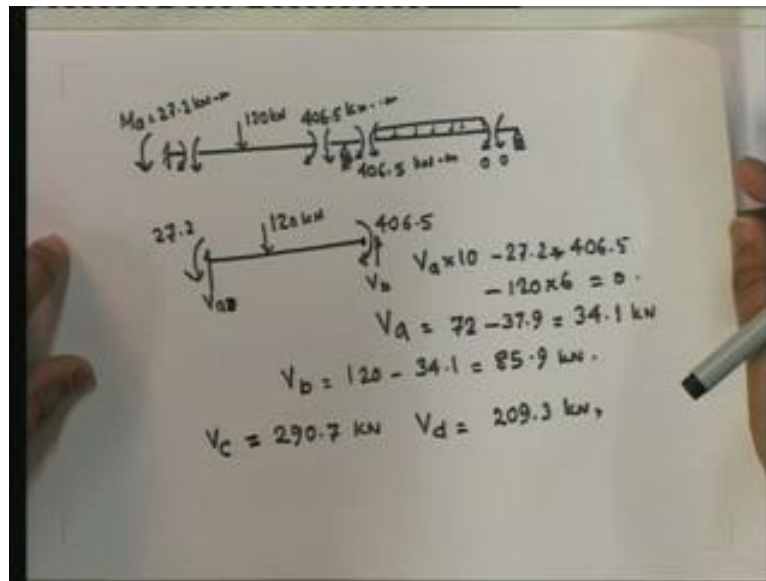 Ma = 27.2 kN-m
120 kN
406.5 kN-m
406.5 kN-m
0 0
27.2
120 kN
406.5
Vb
Va × 10 - 27.2 + 406.5
- 120 × 6 = 0.
Va = 72 - 37.9 = 34.1 kN
Vb = 120 - 34.1 = 85.9 kN.
Vc = 290.7 kN Vd = 209.3 kN,